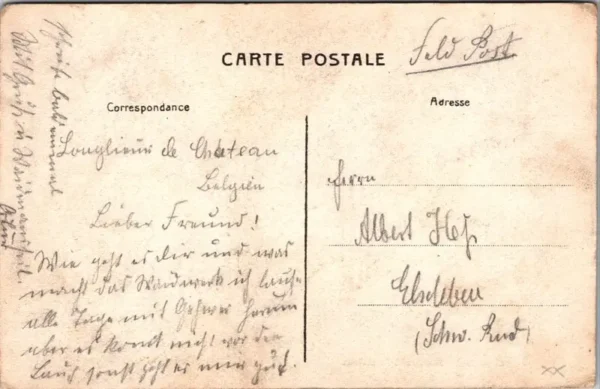 CARTE POSTALE
Feld Post
Correspondance
Adresse
Longlieur de Chateau
Belgien
Lieber Freund!
Wie geht es dir und was
macht das Waidwerk ich laufe
alle Tage mit Gehwer herum
aber es komt nicht vor die
Lauf sonst geht es mir gut.
schreibe bald einmal
Mit Gruß u Waidmannsheil
Herrn
Albert Heß
Elxleben
(Schw. Rud)
XX